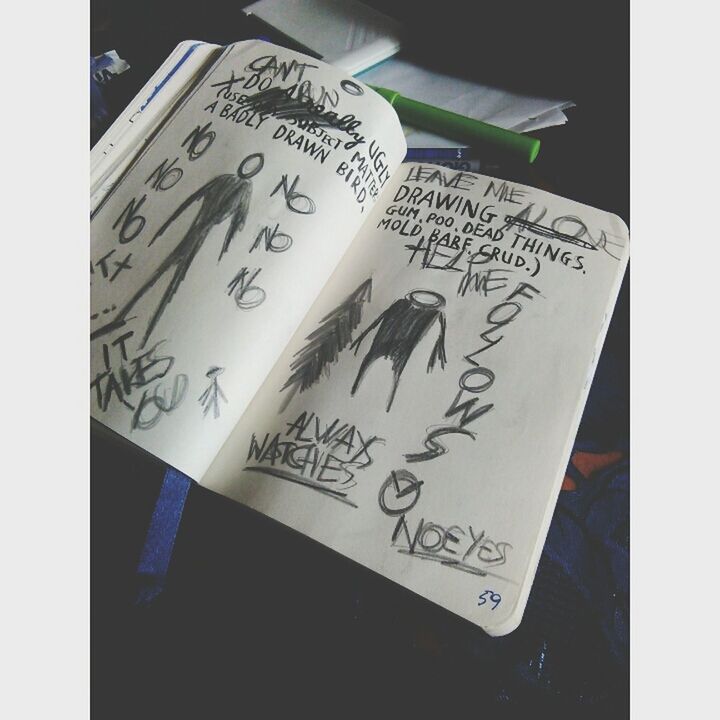 CAN'T
RUN
DO A Really UGLY
(USE SUBJECT MATTER
A BADLY DRAWN BIRD,
NO
NO
NO
NO
NO
NO
IT
TAKES
YOU
LEAVE ME
DRAWING ALONE
GUM, POO, DEAD THINGS,
MOLD, BARF, CRUD.)
HELP
ME
FOLLOWS
ALWAYS
WATCHES
NO EYES
59